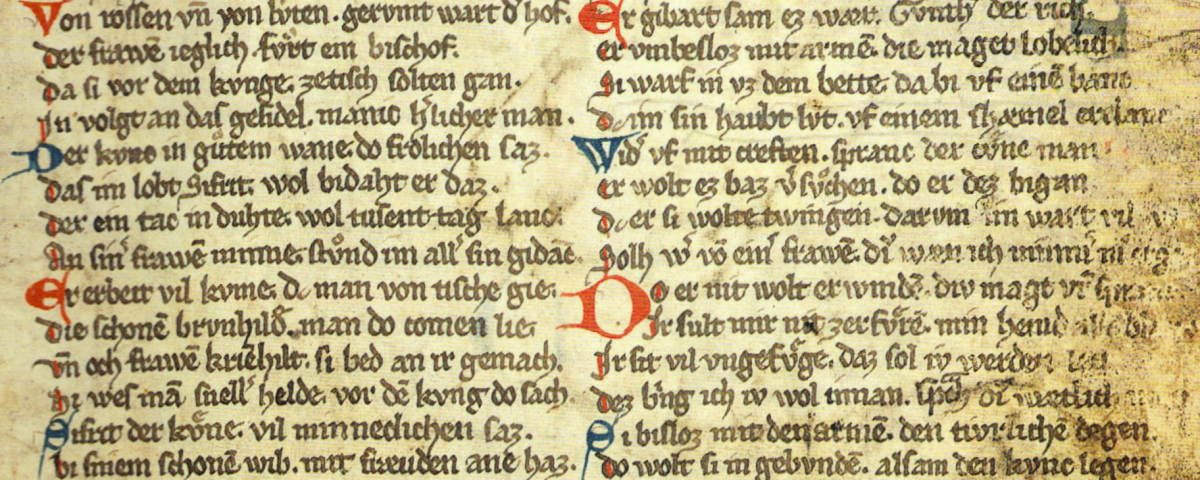 Von rossen vn̄ von lvten. gervmt wart d̾ hof.
der frawē ieglich. fv̊rt ein bischof.
da si vor dem kvnge. zetisch solten gan.
In volgt an das gesidel. manic h̾licher man.
Der kvnc in gůtem wane. do frölichen saz.
das im lobt Sifrit. wol bidaht er daz.
der ein tac in duhte. wol tusent tag lanc.
An sin̾ frawē minne. stůnd im all̾ sin gidāc.
Er erbeit vil kvme. d man von tische gie.
die schonē brvnhild̾. man do comen lie.
vn̄ och frawē kriēhilt. si bed an ir gemach.
hi wes mā snell̾ helde. vor dē kvng do sach.
Sifrit der kv̊ne. vil minneclichen saz.
bi sinem schonē wib. mit freuden ane haz.
Er gibart sam ez wær. Gvnth̾ der rich.
er vmbesloz mit armē. die maget lobelich
Si warf in vz dem bette. da bi vf einē banc
d im sin haubt lvt. vf einem schæmel erclanc
Wid̾ vf mit creften. spranc der cv̊ne man
er wolt ez baz v̾sv̊chen. do er dez bigan
d er si wolte twingen. darvm im wart vil
Solh w̾ vō ein̾ frawē. dv̾ wæn ich nimm̾
Do er nit wolt erwindē. div magt
Ir sult mir nit zerfv̊rē. min hemd
Ir sit vil vngefv̊ge. daz sol iv werden
dez bring ich iv wol innan. sp̾ch div wætlich
Si bisloz mit den armē. den tivrlichē degen.
do wolt si in gebvndē. alsam den kvnc legen.